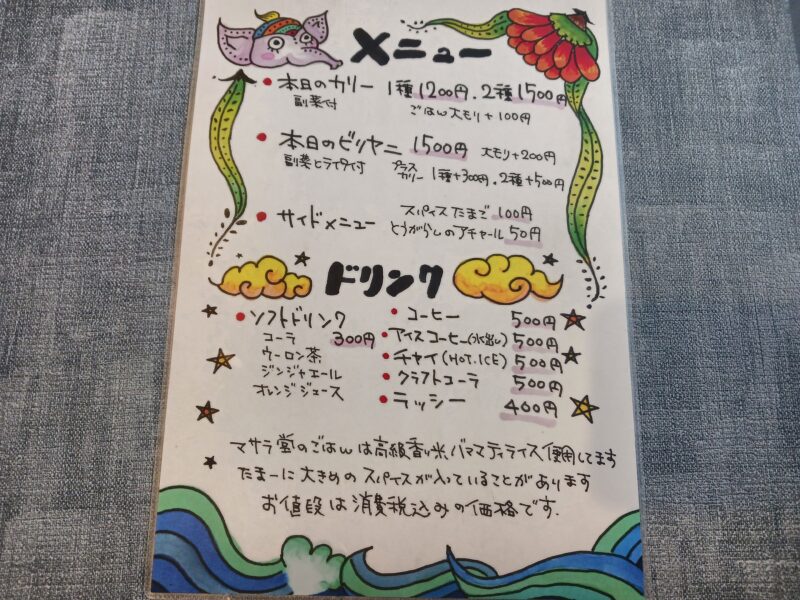 メニュー
・本日のカリー 1種1200円.2種1500円
副菜付 ごはん大モリ+100円
・本日のビリヤニ 1500円 大モリ+200円
副菜とライタ付 プラスカリー 1種+300円.2種+500円
・サイドメニュー スパイスたまご 100円
とうがらしのアチャール 50円
ドリンク
・ソフトドリンク 300円
コーラ
ウーロン茶
ジンジャエール
オレンジジュース
・コーヒー 500円
・アイスコーヒー(水出し) 500円
・チャイ(HOT.ICE) 500円
・クラフトコーラ 500円
・ラッシー 400円
マサラ堂のごはんは高級香り米、バスマティライス使用してます
たまーに大きめのスパイスが入っていることがあります
お値段は消費税込みの価格です.